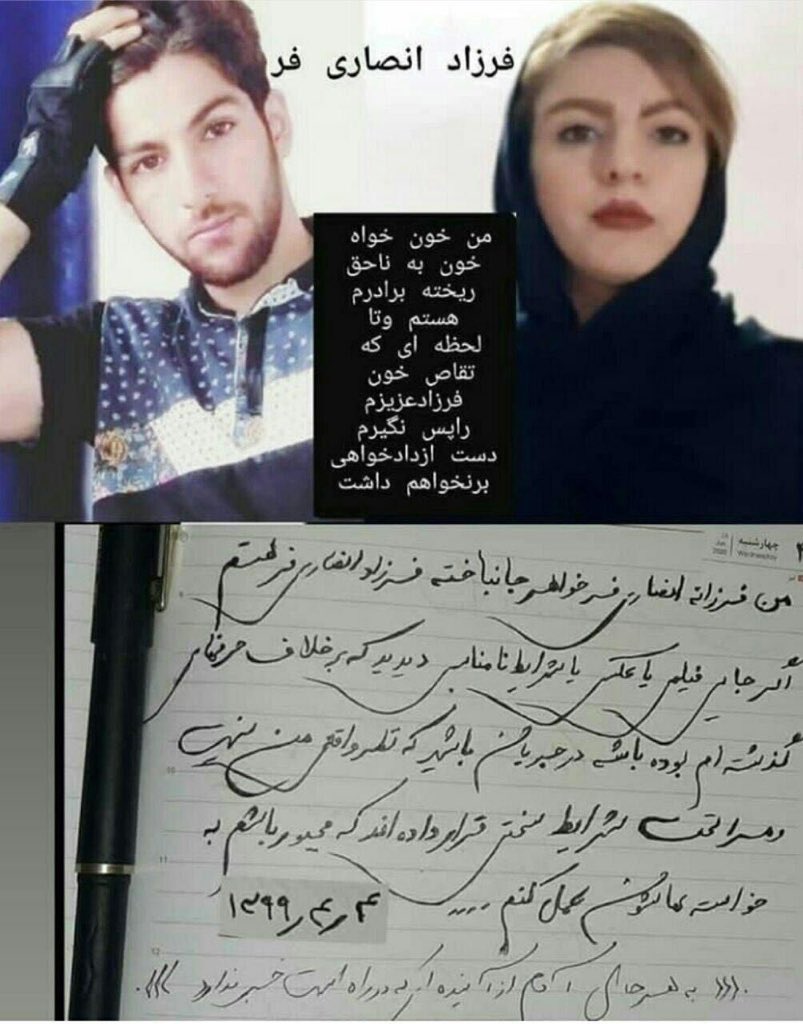 فرزاد انصاری فر
من خون خواه
خون به ناحق
ریخته برادرم
هستم وتا
لحظه ای که
تقاص خون
فرزادعزیزم
راپس نگیرم
دست ازدادخواهی
برنخواهم داشت
چهارشنبه
Wednesday
من فرزانه انصاری فر خواهر جانباخته فرزاد انصاری فر هستم
اگر جایی فیلم یا عکس یا شرایط نامناسبی دیدید که برخلاف حرفهای
گذشته ام بوده باشه در جریان باشید که نظر واقعی من نیست
و مرا تحت شرایط سختی قرار داده اند که مجبور باشم به
خواسته هاشون عمل کنم ....
۱۳۹۹٫۴٫۴
به هر حال آدم از آینده ای که در راه است خبر ندارد